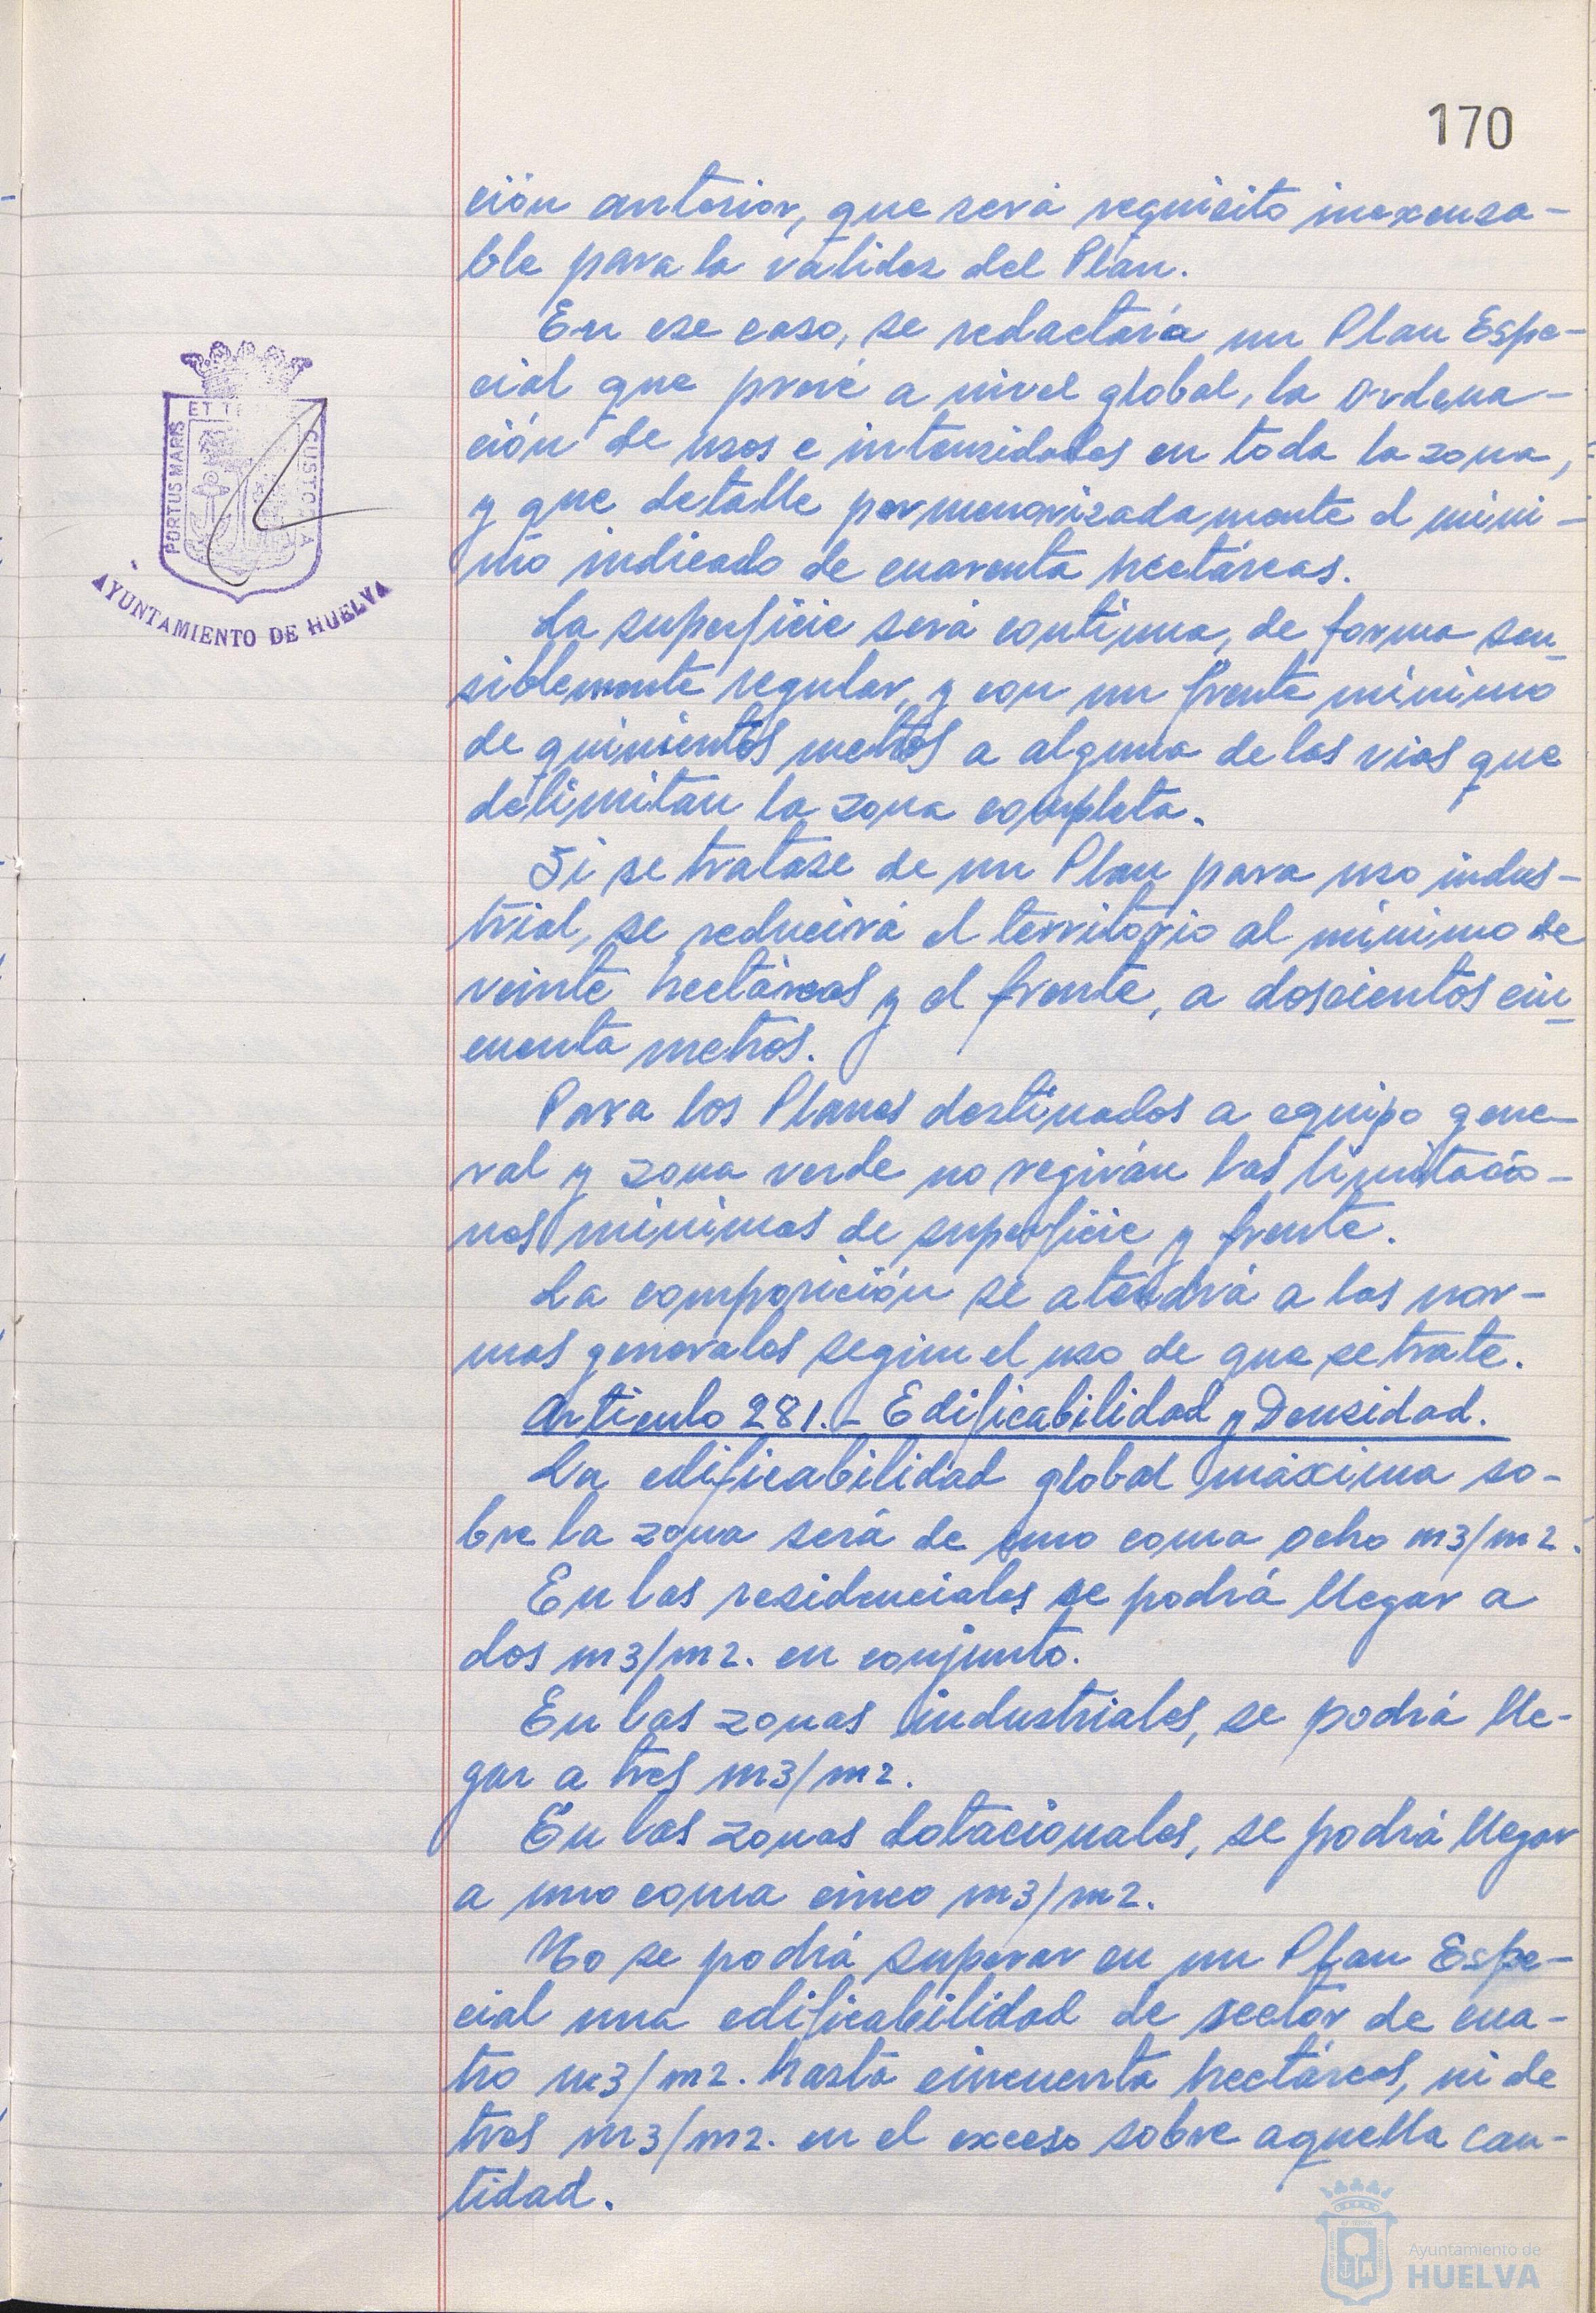 170
ción anterior, que será requisito inexcusa-
ble para la validez del Plan.
En ese caso, se redactará un Plan Espe-
cial que prevé a nivel global, la Ordena-
ción de usos e intensidades en toda la zona,
y que detalle pormenorizadamente el míni-
mo indicado de cuarenta hectáreas.
La superficie será continua, de forma sen_
siblemente regular, y con un frente mínimo
de quinientos metros a alguna de las vías que
delimitan la zona completa.
Si se tratase de un Plan para uso indus-
trial, se reducirá el territorio al mínimo de
veinte hectáreas y el frente, a doscientos cin_
cuenta metros.
Para los Planes destinados a equipo gene-
ral y zona verde no regirán las limitacio-
nes mínimas de superficie y frente.
La composición se atendrá a las nor-
mas generales segun el uso de que se trate.
Artículo 281.- Edificabilidad y Densidad.
La edificabilidad global máxima so-
bre la zona será de uno coma ocho m3/m2.
En las residenciales se podrá llegar a
dos m3/m2. en conjunto.
En las zonas industriales, se podrá lle-
gar a tres m3/m2.
En las zonas dotacionales, se podrá llegar
a uno coma cinco m3/m2.
No se podrá superar en un Plan Espe-
cial una edificabilidad de sector de cua-
tro m3/m2. hasta cincuenta hectáreas, ni de
tres m3/m2. en el exceso sobre aquella can-
tidad.
PORTUS MARIS
ET
AYUNTAMIENTO DE HUELVA
Ayuntamiento de
HUELVA